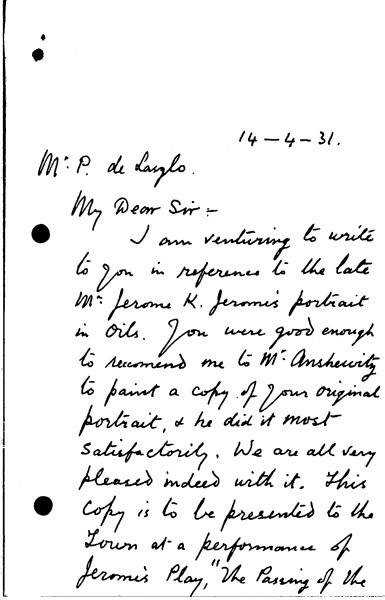 14-4-31.
Mr. P. de Laszlo.
My Dear Sir:-
I am venturing to write
to you in reference to the late
Mr. Jerome K. Jerome's portrait
in Oils. You were good enough
to recomend me to Mr. Anshewitz
to paint a copy of your original
portrait, & he did it most
satisfactorily. We are all very
pleased indeed with it. This
Copy is to be presented to the
Town at a performance of
Jerome's Play, "The Passing of the